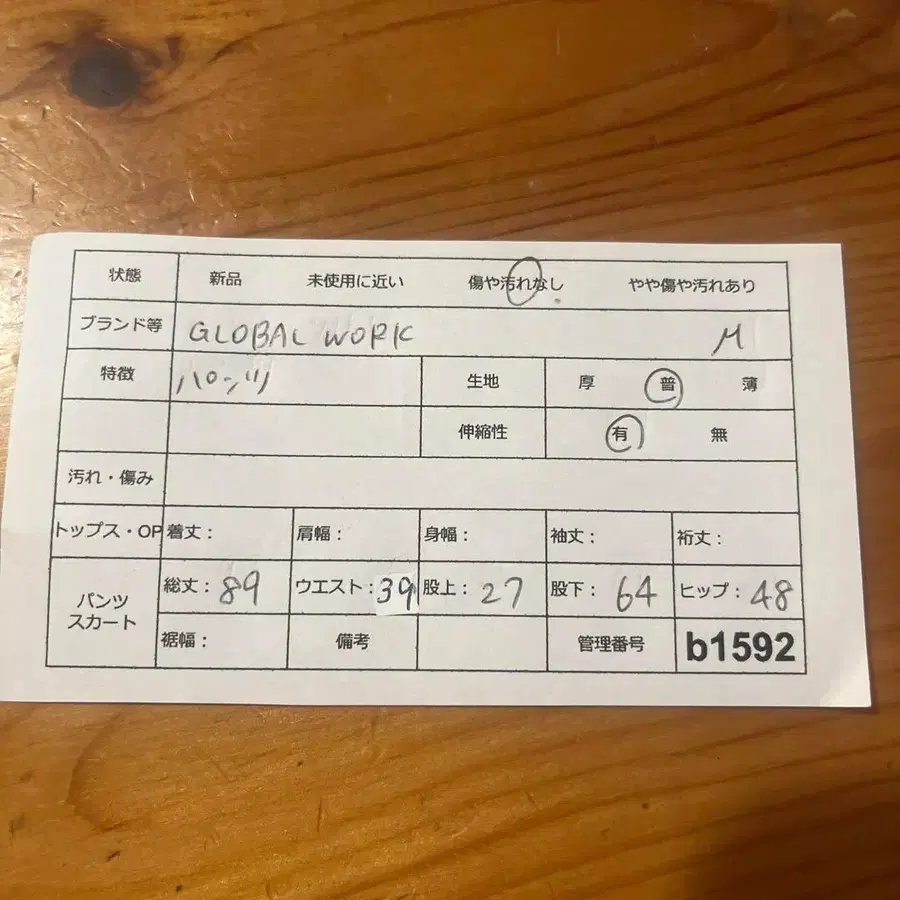 状態 新品 未使用に近い 傷や汚れなし やや傷や汚れあり
ブランド等 GLOBAL WORK M
特徴 パンツ 生地 厚 普 薄
伸縮性 有 無
汚れ・傷み
トップス・OP 着丈： 肩幅： 身幅： 袖丈： 裄丈：
パンツ スカート 総丈：89 ウエスト：39 股上：27 股下：64 ヒップ：48
裾幅： 備考 管理番号 b1592